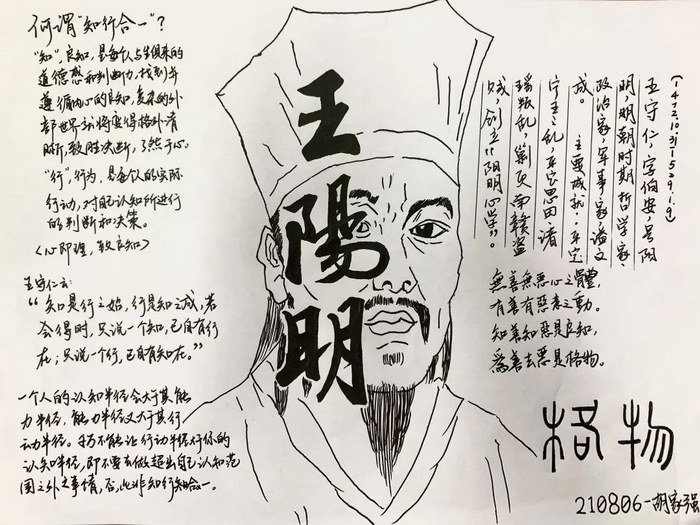 何谓"知行合一"?
"知",良知,是每个人与生俱来的
道德感和判断力,找到并
遵循内心的良知,复杂的外
部世界就将变得格外清
晰,致胜决断,了然于心。
"行",行为,是每个人的实际
行动,对自己认知所进行
的判断和决策。
<心即理,致良知>
王守仁云:
"知是行之始,行是知之成,若
会得时,只说一个知,已自有行
在;只说一个行,已自有知在。"
一个人的认知半径会大于其能
力半径,能力半径又大于其行
动半径。切不能让行动半径行你的
认知半径,即不要去做超出自己认知范
围之外之事情,否,此非知行知合一。
王陽明
(1472.10.31-1529.1.9)
王守仁,字伯安,号阳
明,明朝时期哲学家、
政治家,军事家,
成。主要成就:平定
宁王之乱,平定思田诸
瑶叛乱,剿灭南赣盗
贼,创立"阳明心学"。
無善無惡心之體,
有善有惡意之動。
知善知惡是良知,
為善去惡是格物。
格物
210806-胡家强